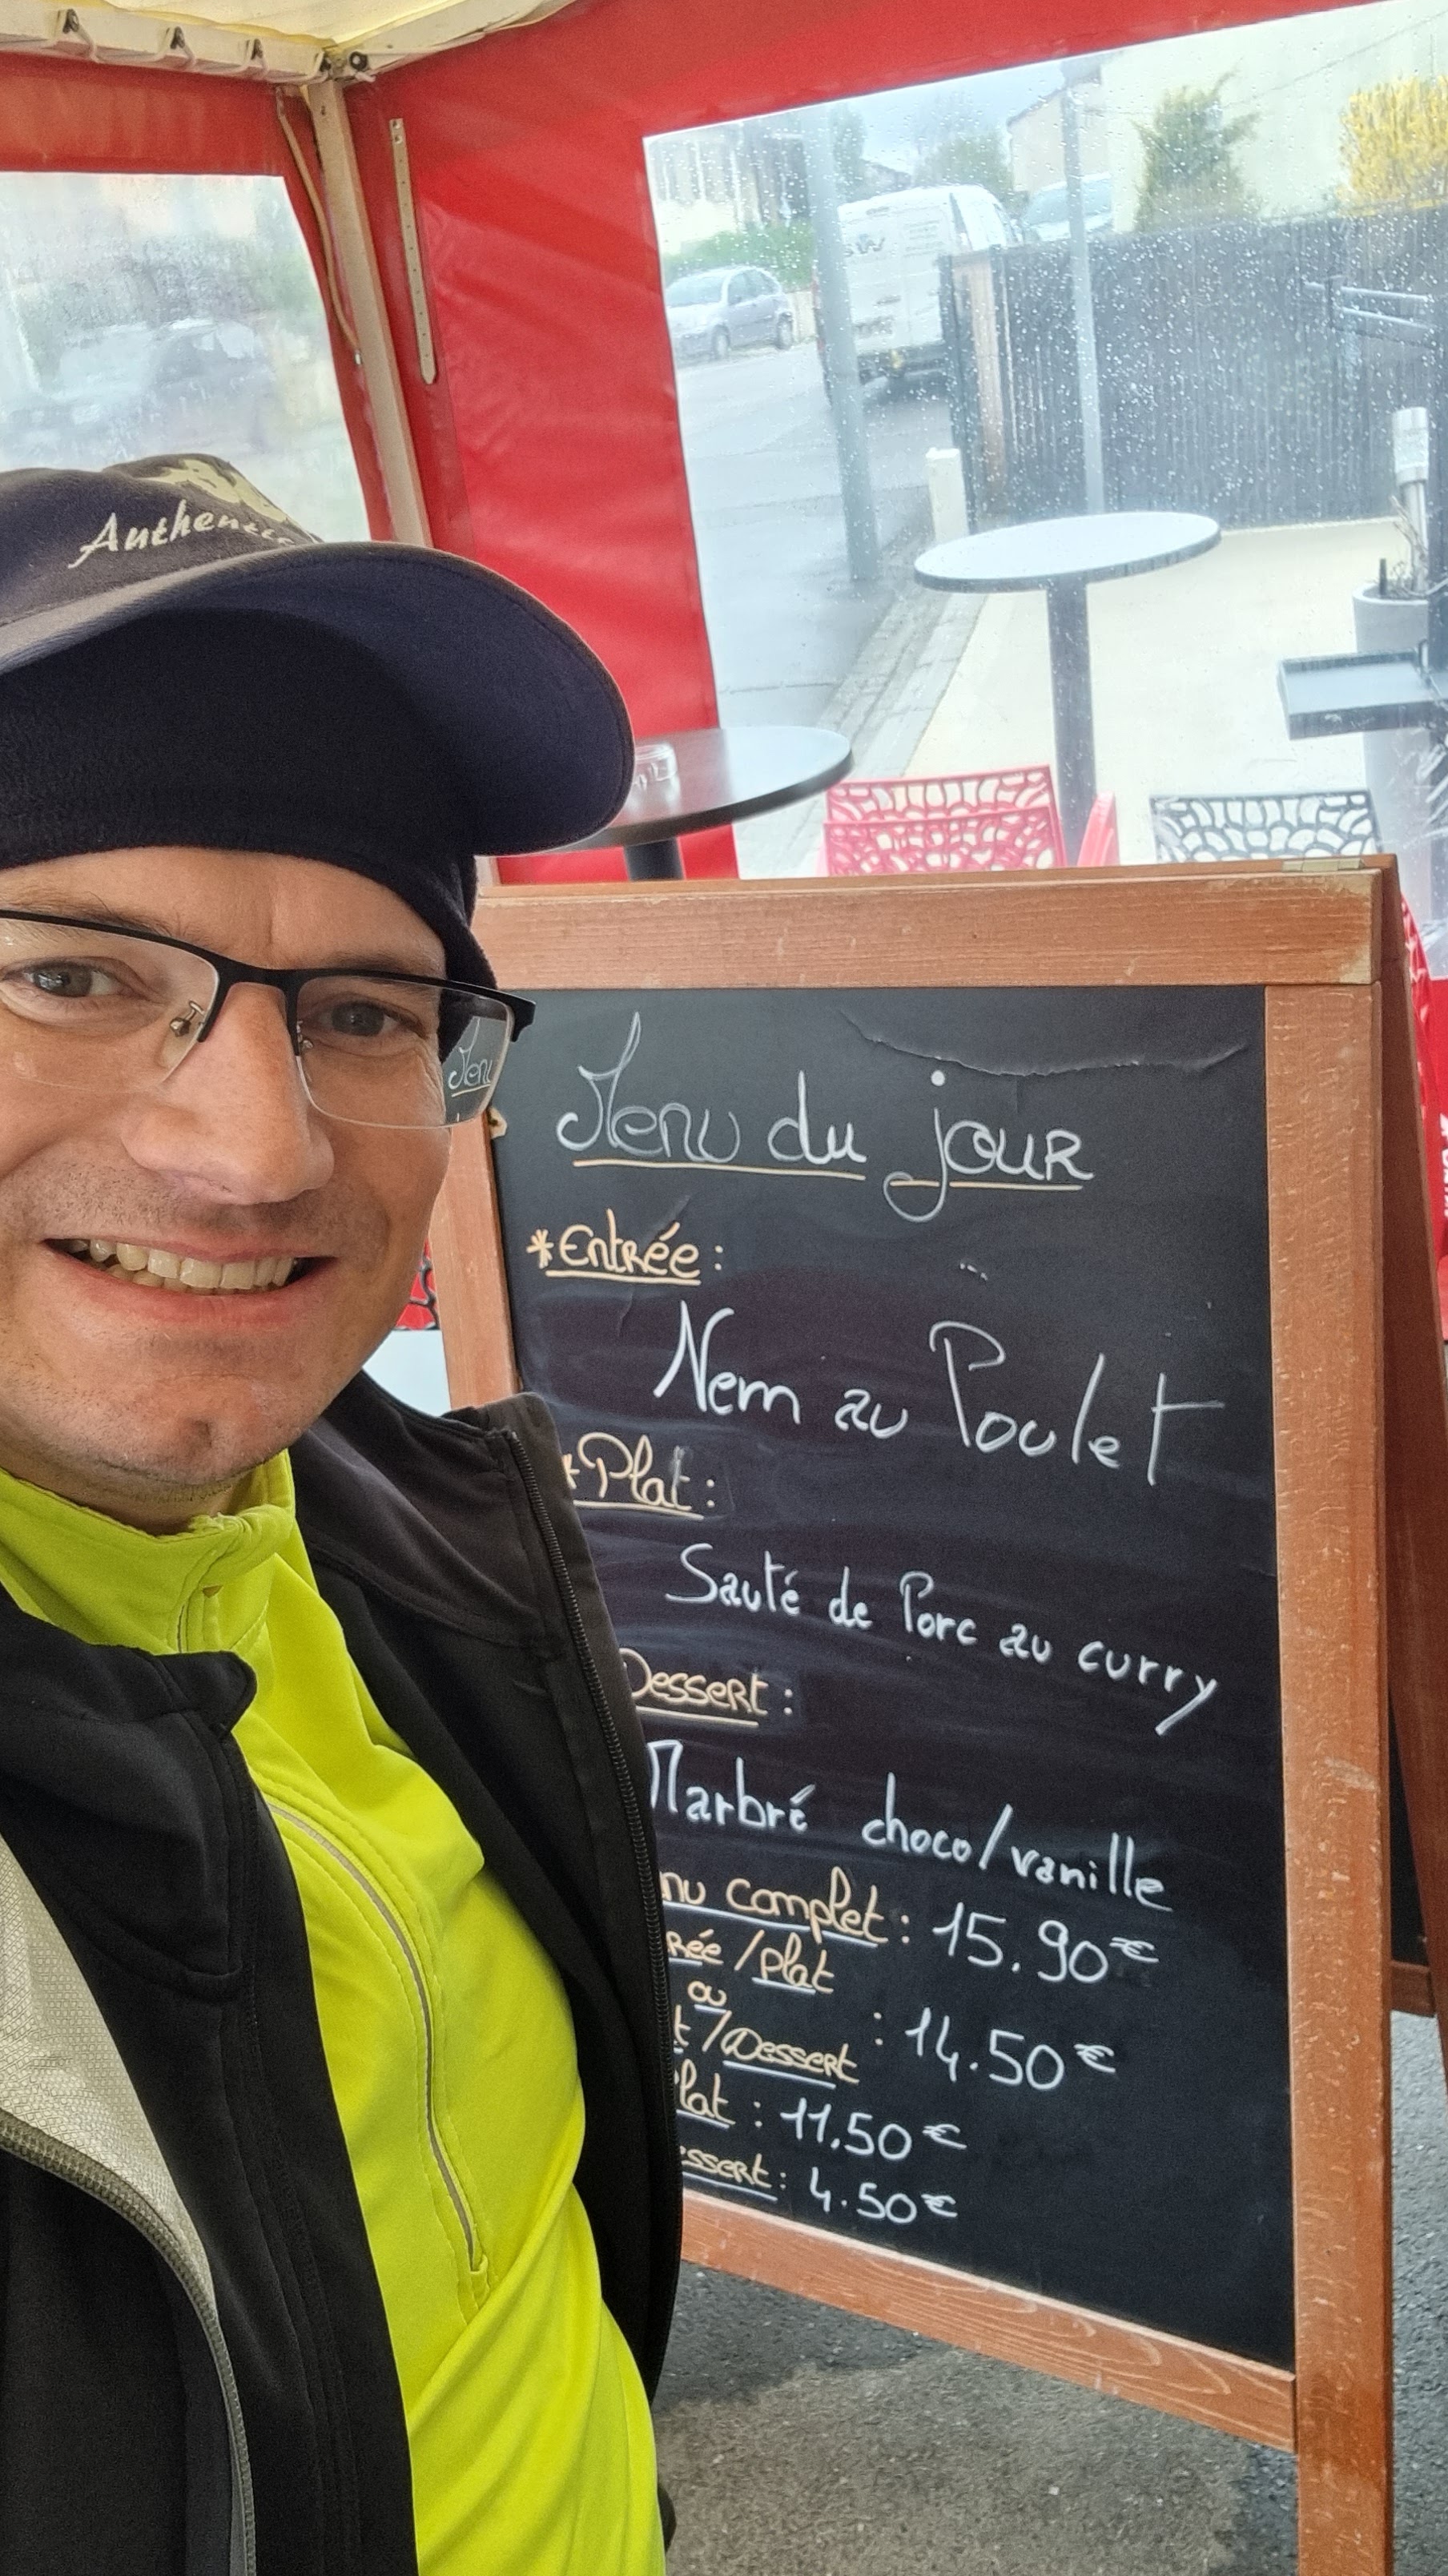 Authentic
Menu du jour
*Entrée :
Nem au Poulet
*Plat :
Sauté de Porc au curry
Dessert :
Marbré choco/vanille
nu complet : 15.90€
rée/Plat
ou
t/Dessert : 14.50€
Plat : 11.50€
essert : 4.50€